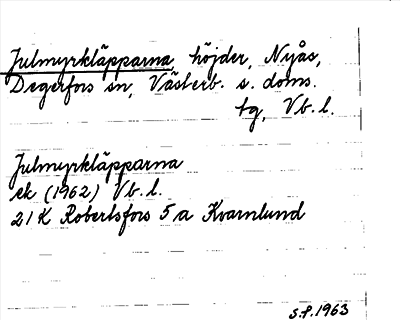 Julmyrkläpparna, höjder, Nyås,
Degerfors sn, Västerb. s. doms.
tg, Vb. l.
Julmyrkläpparna
ek (1962) Vb. l.
21 K Robertsfors 5 a Kvarnlund
S.P. 1963